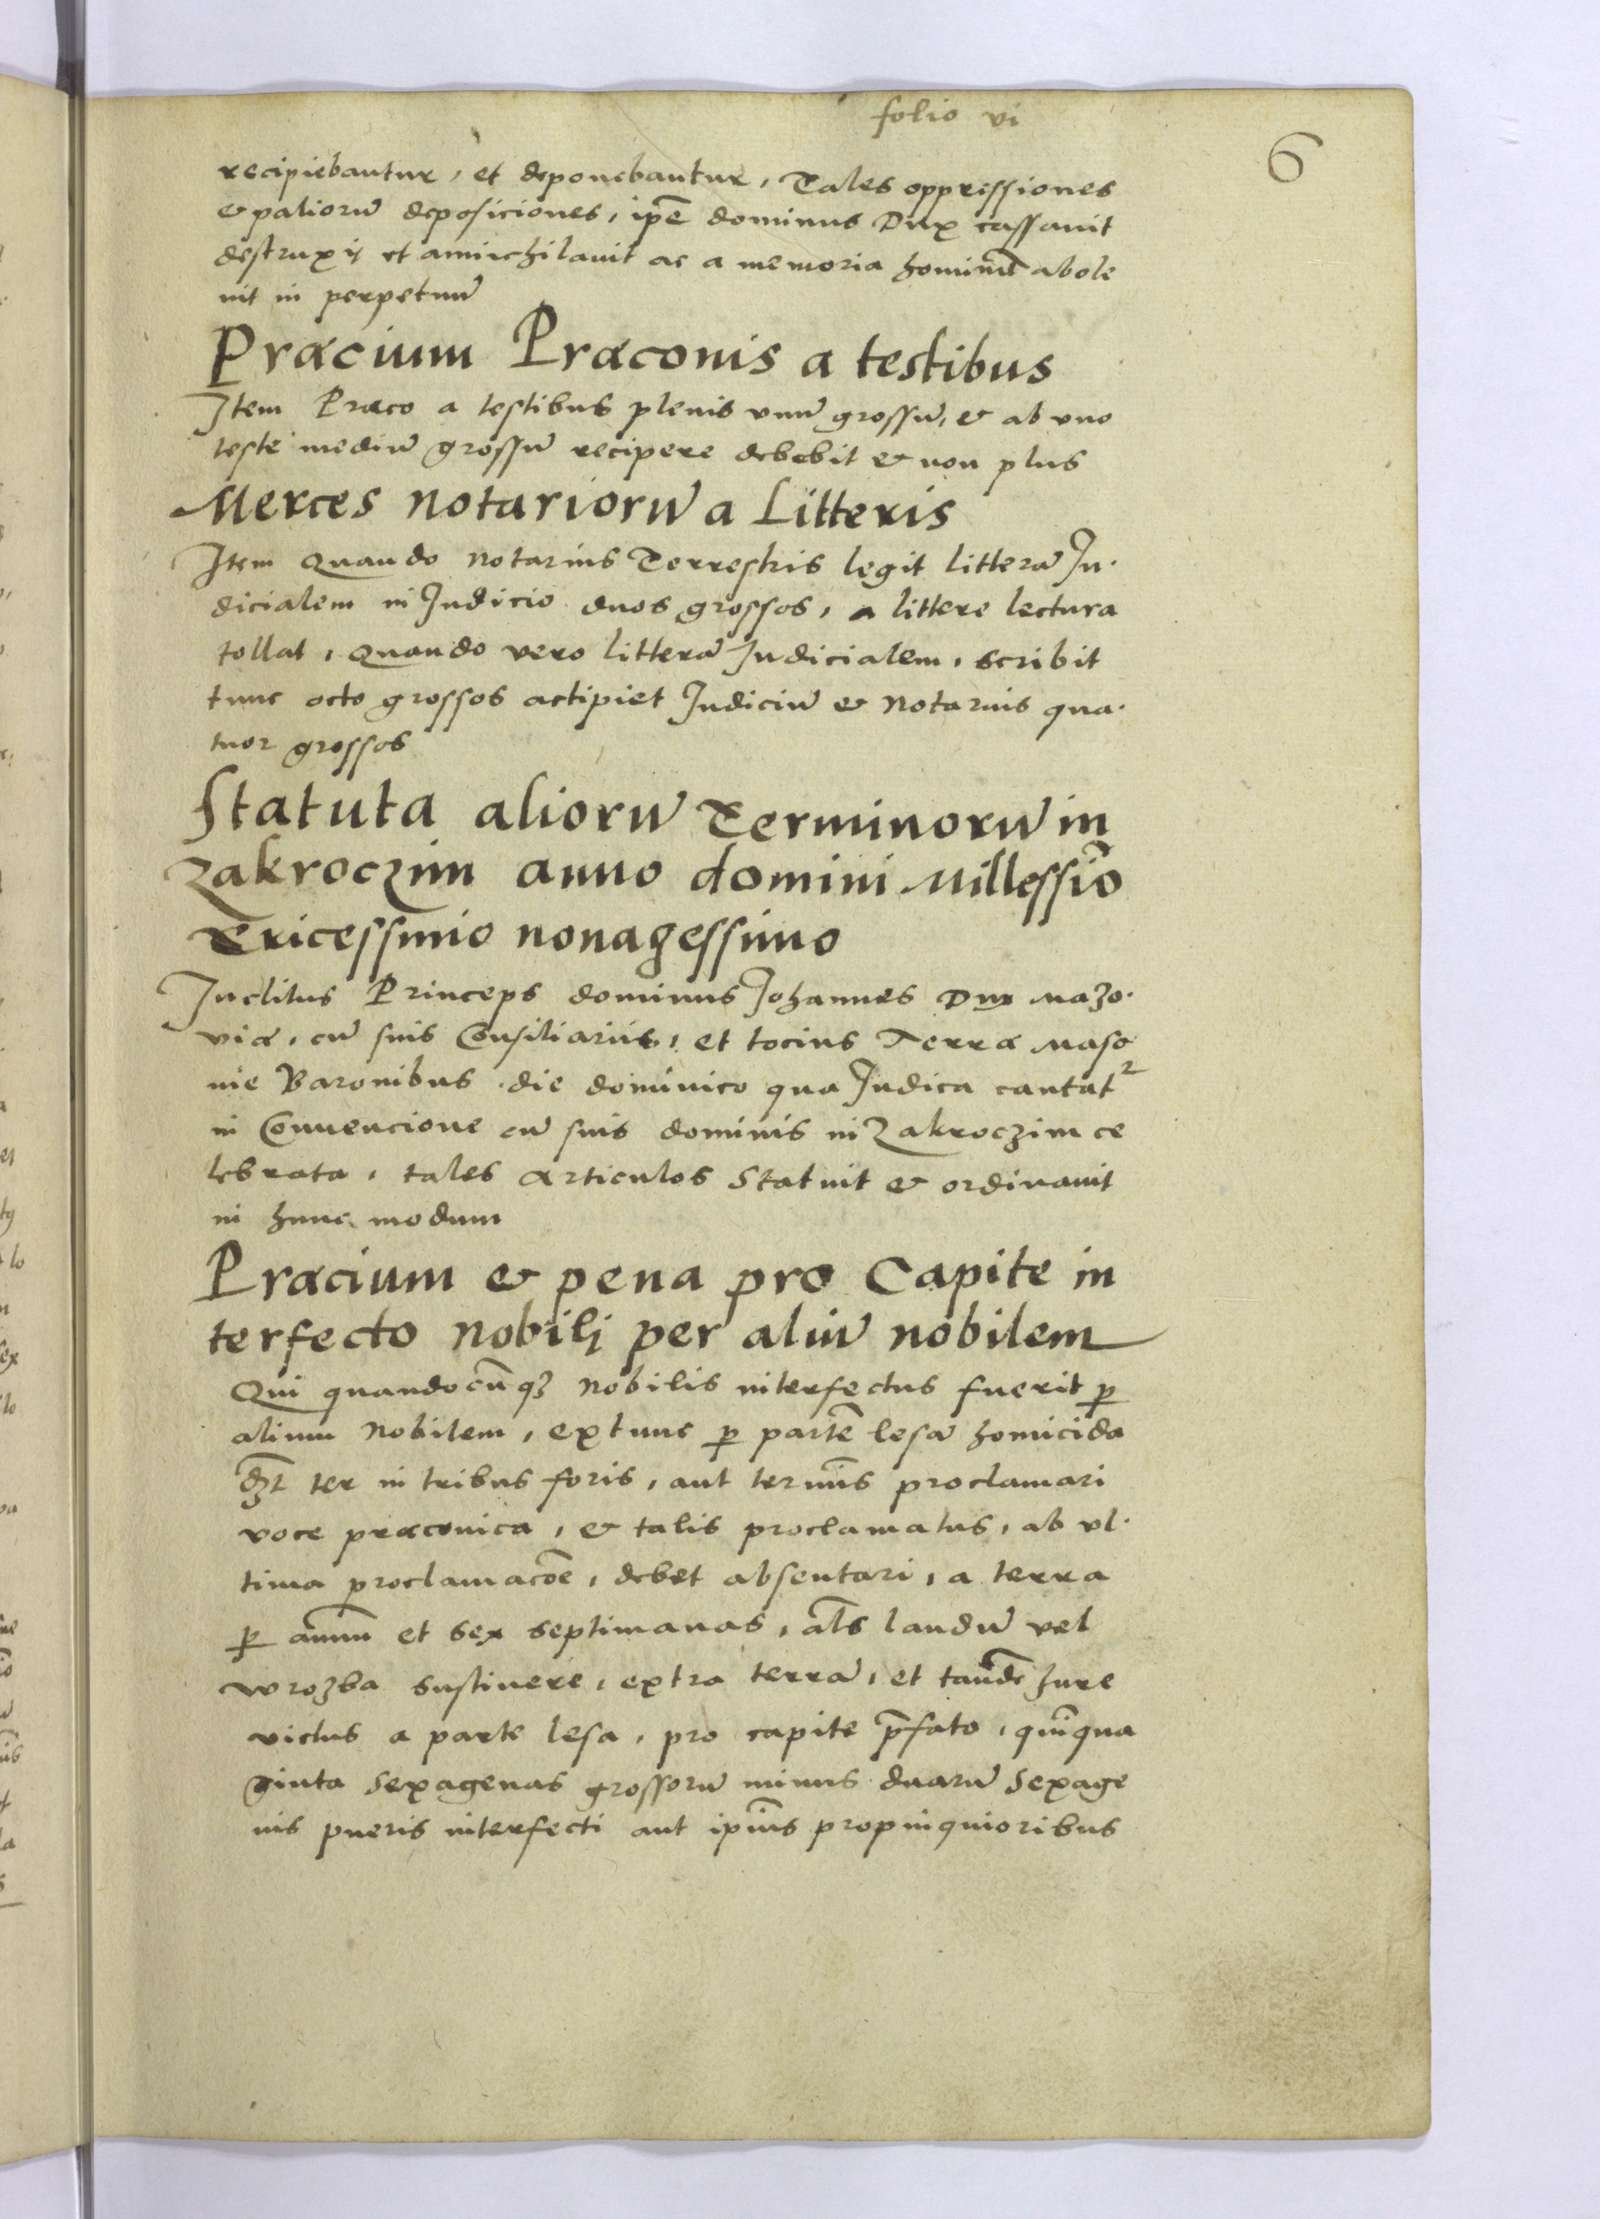 folio vi
6
recipiebantur, et deponebantur, Tales oppressiones
& paliorū deposiciones, ip̄e dominus Dux cassauit
destruxit et anniichilauit ac a memoria hominū abole
uit in perpetuū
Præcium Præconis a testibus
Item Præco a testibus plenis vnū grossū, & ab vno
teste mediū grossū recipere debebit & non plus
Merces notariorū a Litteris
Item Quando Notarius Terrestris legit litterā Iu-
dicialem in Iudicio duos grossos, a littere lectura
tollat, Quando vero litterā Iudicialem, scribit
tunc octo grossos actipiet Iudiciū & Notarius qua-
tuor grossos
Statuta aliorū Terminorū in
Zakroczim anno domini Millessiō
Tricessimo nonagessimo
Inclitus Princeps dominus Iohannes Dux Mazo-
viæ, cū suis Consiliariis, et tocius Terræ Maso
uie Baronibus die dominico qua Iudica cantatr
in Conuencione cū suis dominis in Zakroczim ce
lebrata, tales articulos Statuit & ordinauit
in hunc modum
Præcium & pena pro Capite in
terfecto nobili per aliū nobilem
Qui quandocūq3 Nobilis interfectus fuerit p
alium Nobilem, extunc p partē lesā homicida
d3t ter in tribus foris, aut termīs proclamari
voce præconica, & talis proclamatus, ab vl-
tima proclamacōe, debet absentari, a terra
p annū et sex septimanas, als laudū vel
wrozba sustinere, extra terrā, et tandē Iure
victus a parte lesa, pro capite p̄fato, quīqua
ginta sexagenas grossorū minus duarū sexage
nis pueris interfecti aut ipīus propinquioribus